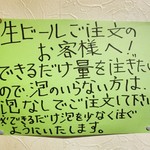 生ビールご注文の
お客様へ!
できるだけ量を注ぎたい
ので泡のいらない方は、
泡なしでご注文して下さい
※できるだけ泡を少なく注ぐ
ようにいたします。